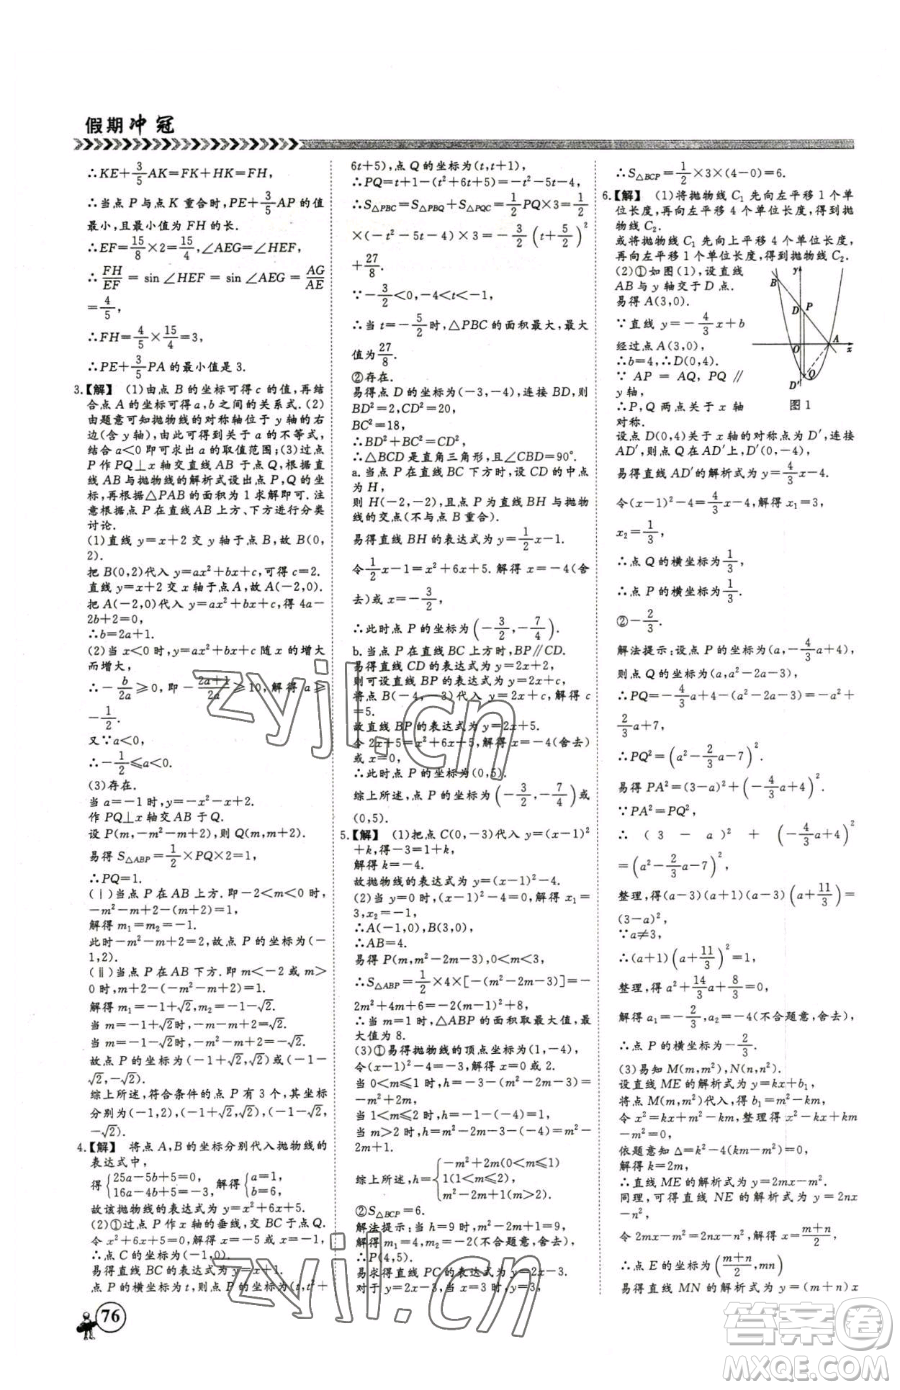 假期冲冠
∴KE+3/5AK=FK+HK=FH.
∴当点P与点K重合时,PE+3/5AP的值
最小,且最小值为FH的长.
∴EF=15/8×2=15/4,∠AEG=∠HEF.
∴FH/EF=sin∠HEF=sin∠AEG=AG/AE
=4/5,
∴FH=4/5×15/4=3,
∴PE+3/5PA的最小值是3.
3.【解】 (1)由点B的坐标可得c的值,再结
合点A的坐标可得a,b之间的关系式.(2)
由题意可知抛物线的对称轴位于y轴的右
边(含y轴),由此可得关于a的不等式,
结合a<0即可求出a的取值范围;(3)过点
P作PQ⊥x轴交直线AB于点Q,根据直
线与抛物线的解析式设出点P,Q的坐
标,再根据△PAB的面积为1求解即可.
注意:点P在直线AB上方、下方需进行分类
讨论.
(1)直线y=x+2交y轴于点B,故B(0,
2).
把B(0,2)代入y=ax²+bx+c,得c=2.
直线y=x+2交x轴于点A,故A(-2,0).
把A(-2,0)代入y=ax²+bx+2,得4a-
2b+2=0,
∴b=2a+1.
(2)当x<0时,y=ax²+bx+c随x的增大
而增大,
∴-b/2a≥0,即-(2a+1)/2a≥0,解得a≥
-1/2.
又∵a<0,
∴-1/2≤a<0.
(3)存在.
当a=-1时,y=-x²-x+2.
作PQ⊥x轴,交直线AB于点Q.
设P(m,-m²-m+2),则Q(m,m+2).
易得S△ABP=1/2×PQ×2=1.
∴PQ=1.
(Ⅰ)当点P在AB上方时,-2<m<0,
-m²-m+2-(m+2)=1,
解得m₁=m₂=-1.
此时-m²-m+2=2,故点P的坐标为(-
1,2).
(Ⅱ)当点P在AB下方时,m<-2或m>
0时,m+2-(-m²-m+2)=1,
解得m₁=-1+√2,m₂=-1-√2.
当m=-1+√2时,-m²-m+2=√2.
当m=-1-√2时,-m²-m+2=-√2.
故点P的坐标为(-1+√2,√2)或(-1-
√2,-√2).
综上所述,符合条件的点P有3个,其坐标
分别为(-1,2),(-1+√2,√2),(-1-√2,
-√2).
4.【解】 将点A,B的坐标分别代入抛物线的
表达式中,
得{25a-5b+5=0, 16a-4b+5=-3, 解得{a=1, b=6.
故抛物线的表达式为y=x²+6x+5.
(2)①过点P作y轴的垂线,交BC于点Q.
令x²+6x+5=0,解得x=-5或x=-1,
∴点C的坐标为(-1,0).
易得直线BC的表达式为y=x+1.
设点P的横坐标为t,则点P的坐标为(t,t²+
76
6t+5),点Q的坐标为(t,t+1),
∴PQ=t+1-(t²+6t+5)=-t²-5t-4,
∴S△PBC=S△PBQ+S△PQC=1/2PQ×3=1/2
×(-t²-5t-4)×3=-3/2(t+5/2)²
+27/8.
∵-3/2<0,-4<t<-1,
∴当t=-5/2时,△PBC的面积最大,最大
值为27/8.
②存在.
易得点D的坐标为(-3,-4),连接BD,
BD²=2,CD²=20,
BC²=18,
∴BD²+BC²=CD²,
∴△BCD是直角三角形,且∠CBD=90°.
a.当点P在直线BC下方时,设CD的中点
为H,
则H(-2,-2),且点P为直线BH与抛物
线的交点(不与点B重合).
易得直线BH的表达式为y=1/2x-1.
令1/2x-1=x²+6x+5.解得x=-4(舍
去)或x=-3/2,
∴此时点P的坐标为(-3/2,-7/4).
b.当点P在直线BC上方时,BP∥CD.
易得直线CD的表达式为y=2x+2,
则可设直线BP的表达式为y=2x+c,
将点B(-4,-3)代入y=2x+c,解得c
=5.
故直线BP的表达式为y=2x+5.
令2x+5=x²+6x+5,解得x=-4(舍去)
或x=0.
∴此时点P的坐标为(0,5).
综上所述,点P的坐标为(-3/2,-7/4)或
(0,5).
5.【解】 (1)把点C(0,-3)代入y=(x-1)²
+k,得-3=1+k,
解得k=-4.
故抛物线的表达式为y=(x-1)²-4.
(2)当y=0时,(x-1)²-4=0,解得x₁=
3,x₂=-1,
∴A(-1,0),B(3,0),
∴AB=4.
易得P(m,m²-2m-3),m²-2m-3<0,
∴S△ABP=1/2×4×[-(m²-2m-3)]=-
2m²+4m+6=-2(m-1)²+8,
∴当m=1时,△ABP的面积取最大值,最
大值为8.
(3)①易得抛物线的顶点坐标为(1,-4).
令(x-1)²-4=-3,解得x=0或x=2.
当0<m≤1时,h=-3-(m²-2m-3)=
-m²+2m,
当1<m≤2时,h=-3-(-4)=1,
当m>2时,h=m²-2m-3-(-4)=m²-
2m+1,
综上所述,h={-m²+2m(0<m≤1) 1(1<m≤2) m²-2m+1(m>2)
②S△BCP=6.
解法提示:当h=9时,m²-2m+1=9,
解得m₁=4,m₂=-2(不合题意,舍去),
∴P(4,5).
易求得直线PC的表达式为y=2x-3.
对于y=2x-3,当y=0时,x=3/2,
∴S△BCP=1/2×3×(4-0)=6.
6.【解】 (1)将抛物线C₁先向左平移1个单
位长度,再向左平移4个单位长度,得到抛
物线C₂.
或将抛物线C₁先向上平移4个单位长度,
再向左平移1个单位长度,得到抛物线C₂.
(2)①如图(1),设直线
AB与y轴交于D点.
易得A(3,0).
∵直线y=-4/3x+b
经过点A(3,0),
∴b=4.
∵PQ∥
y轴,
∴P,Q两点关于x轴
对称.
图1
设点D(0,4)关于x轴的对称点为D′,连接
AD′,则点Q在直线AD′上,D′(0,-4).
易得直线AD′的解析式为y=4/3x-4.
令(x-1)²-4=4/3x-4,解得x₁=3,
x₂=1/3.
∴点Q的横坐标为1/3,
∴点P的横坐标为1/3.
②-2/3.
解法提示:设点P的坐标为(a,-4/3a+4),
则点Q的坐标为(a,a²-2a-3).
∴PQ=-4/3a+4-(a²-2a-3)=-a²+
2/3a+7,
∴PQ²=(a²-2/3a-7)².
易得PA²=(3-a)²+(-4/3a+4)².
∵PA²=PQ²,
∴(3-a)²+(-4/3a+4)²
=(a²-2/3a-7)²,
整理,得(a-3)(a+1)(a-3)(a+11/3)=
(3-a)².
∵a≠3,
∴(a+1)(a+11/3)=1,
整理,得a²+14/3a+8/3=0,
解得a₁=-2/3,a₂=-4(不合题意,舍去),
∴点P的横坐标为-2/3.
(3)易知M(m,m²),N(n,n²).
设直线ME的解析式为y=kx+b₁,
将点M(m,m²)代入,得b₁=m²-km,
令x²=kx+m²-km,整理得x²-kx+km
-m²=0.
依题意知Δ=k²-4(km-m²)=0,
解得k=2m.
∴直线ME的解析式为y=2mx-m².
同理,可得直线NE的解析式为y=2nx
-n².
令2mx-m²=2nx-n²,解得x=(m+n)/2,
∴点E的坐标为((m+n)/2,mn).
易得直线MN的解析式为y=(m+n)x